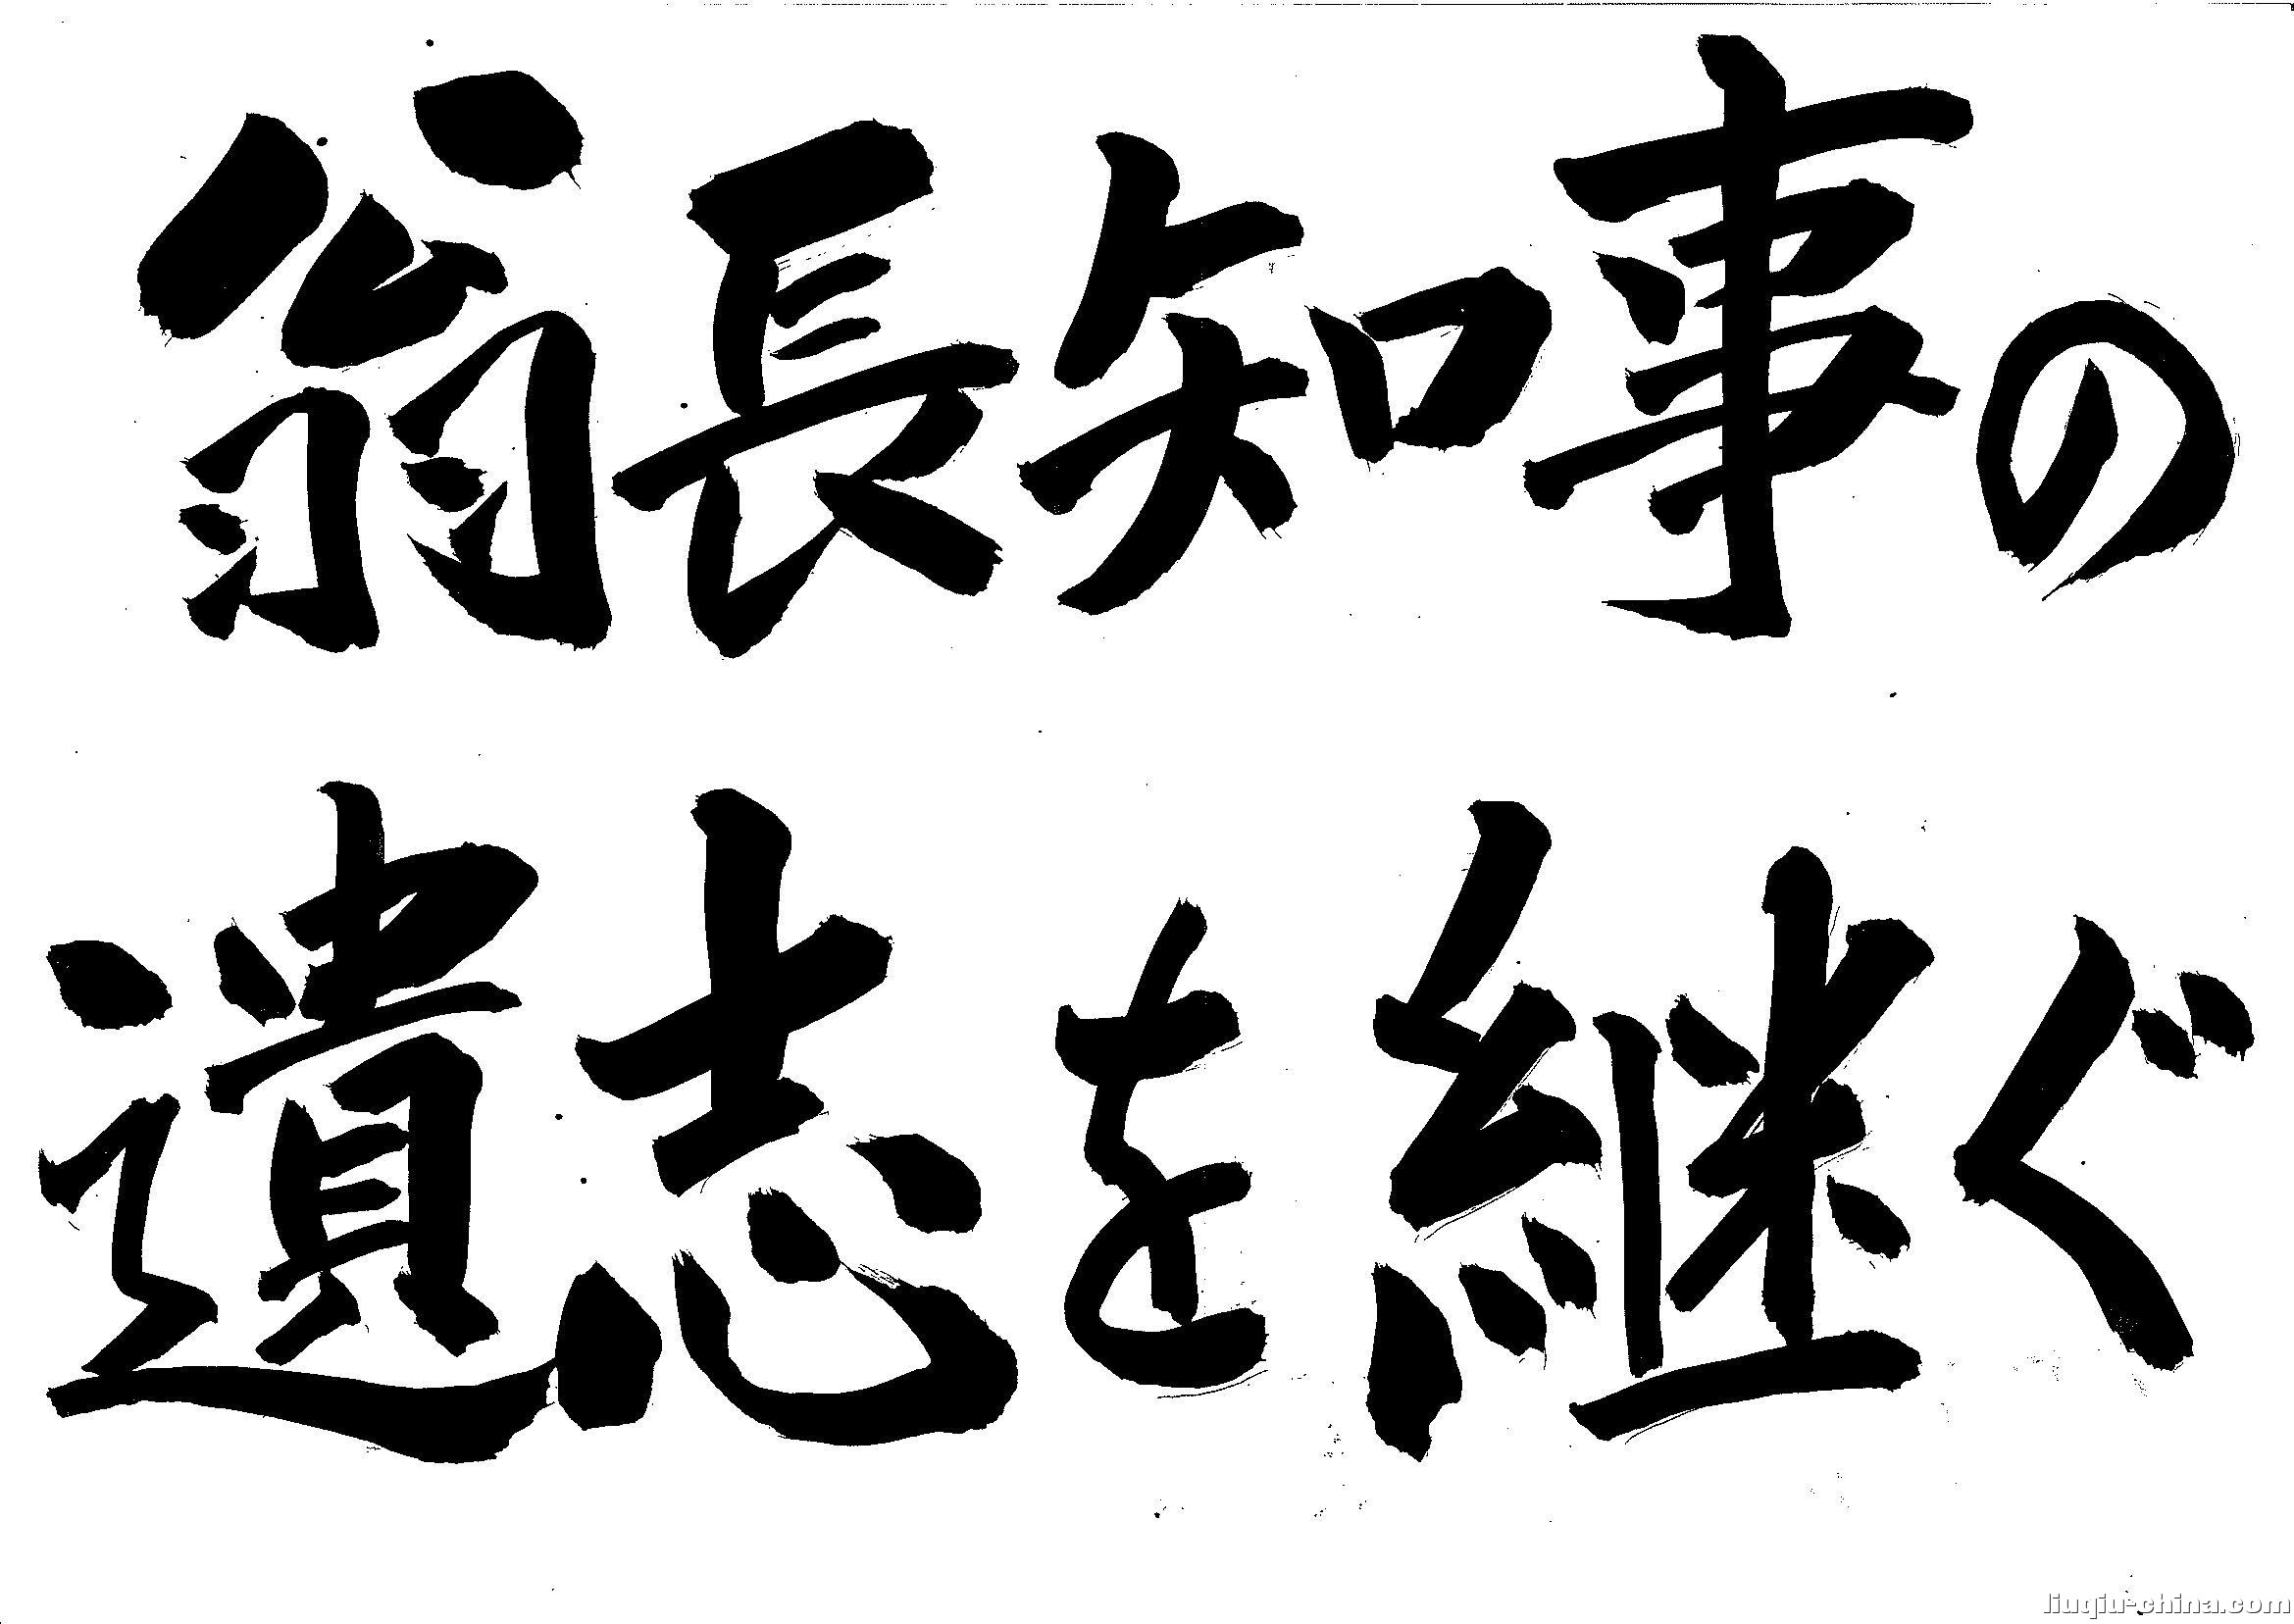 翁長知事の
遺志を継ぐ
liuqiu-china.com